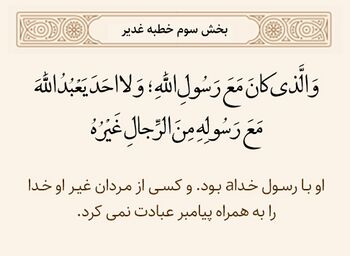 بخش سوم خطبه غدیر
وَالَّذی کانَ مَعَ رَسُولِ اللهِ؛ وَلا اَحَدَ یَعْبُدُ اللهَ
مَعَ رَسُولِهِ مِنَ الرِّجالِ غَیْرُهُ
او با رسول خداa بود. و کسی از مردان غیر او خدا
را به همراه پیامبر عبادت نمی کرد.